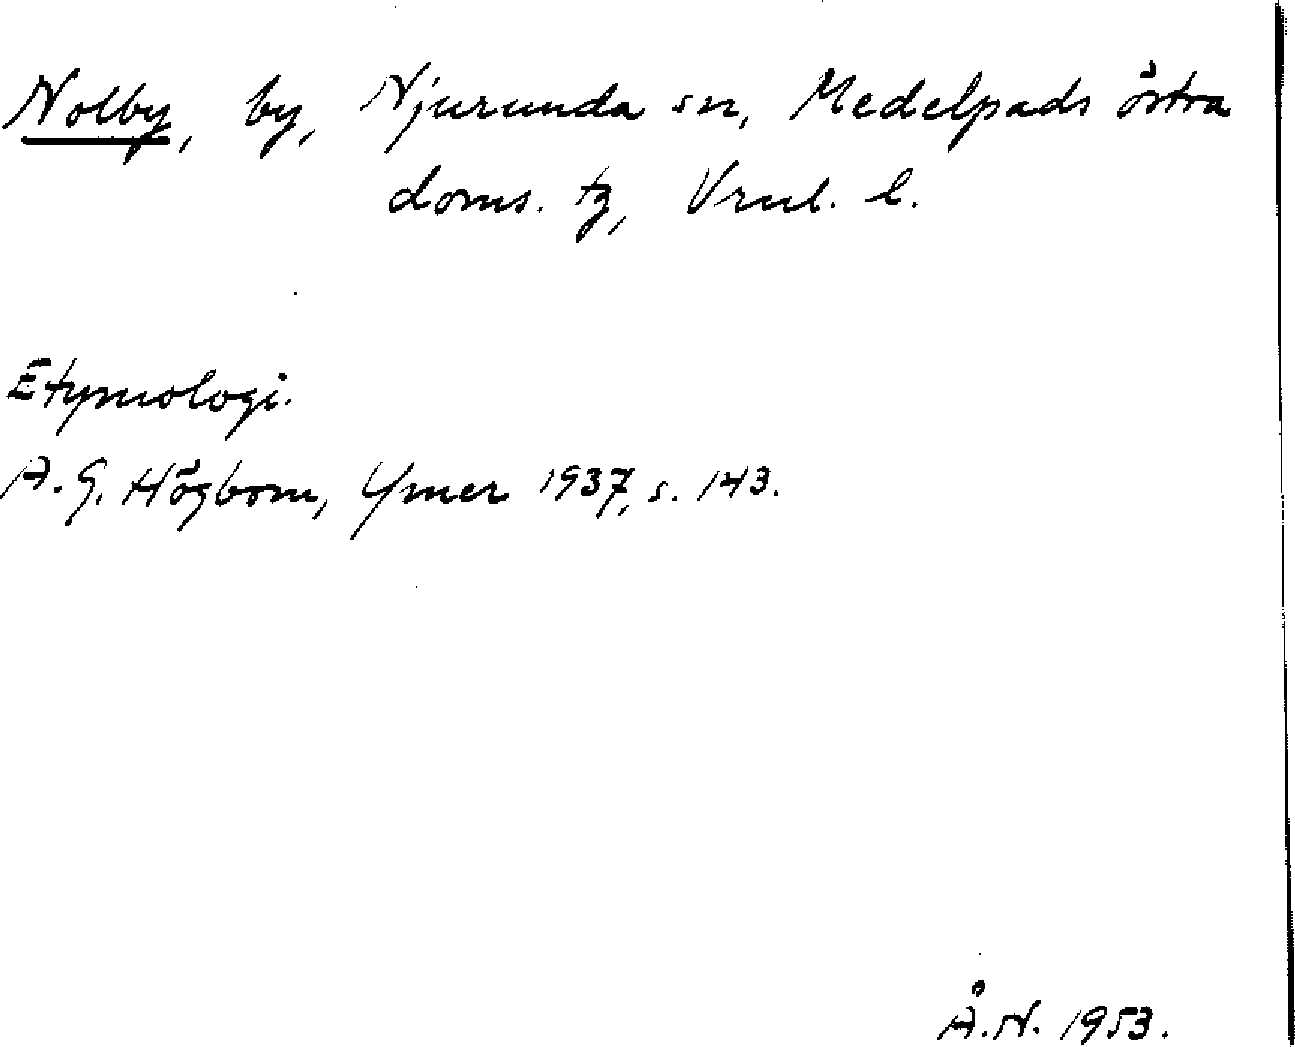 Nolby, by, Njurunda sn, Medelpads östra
doms. tg, Vrnl. l.
Etymologi.
A. G. Högbom, Ymer 1937, s. 143.
Å. N. 1953.